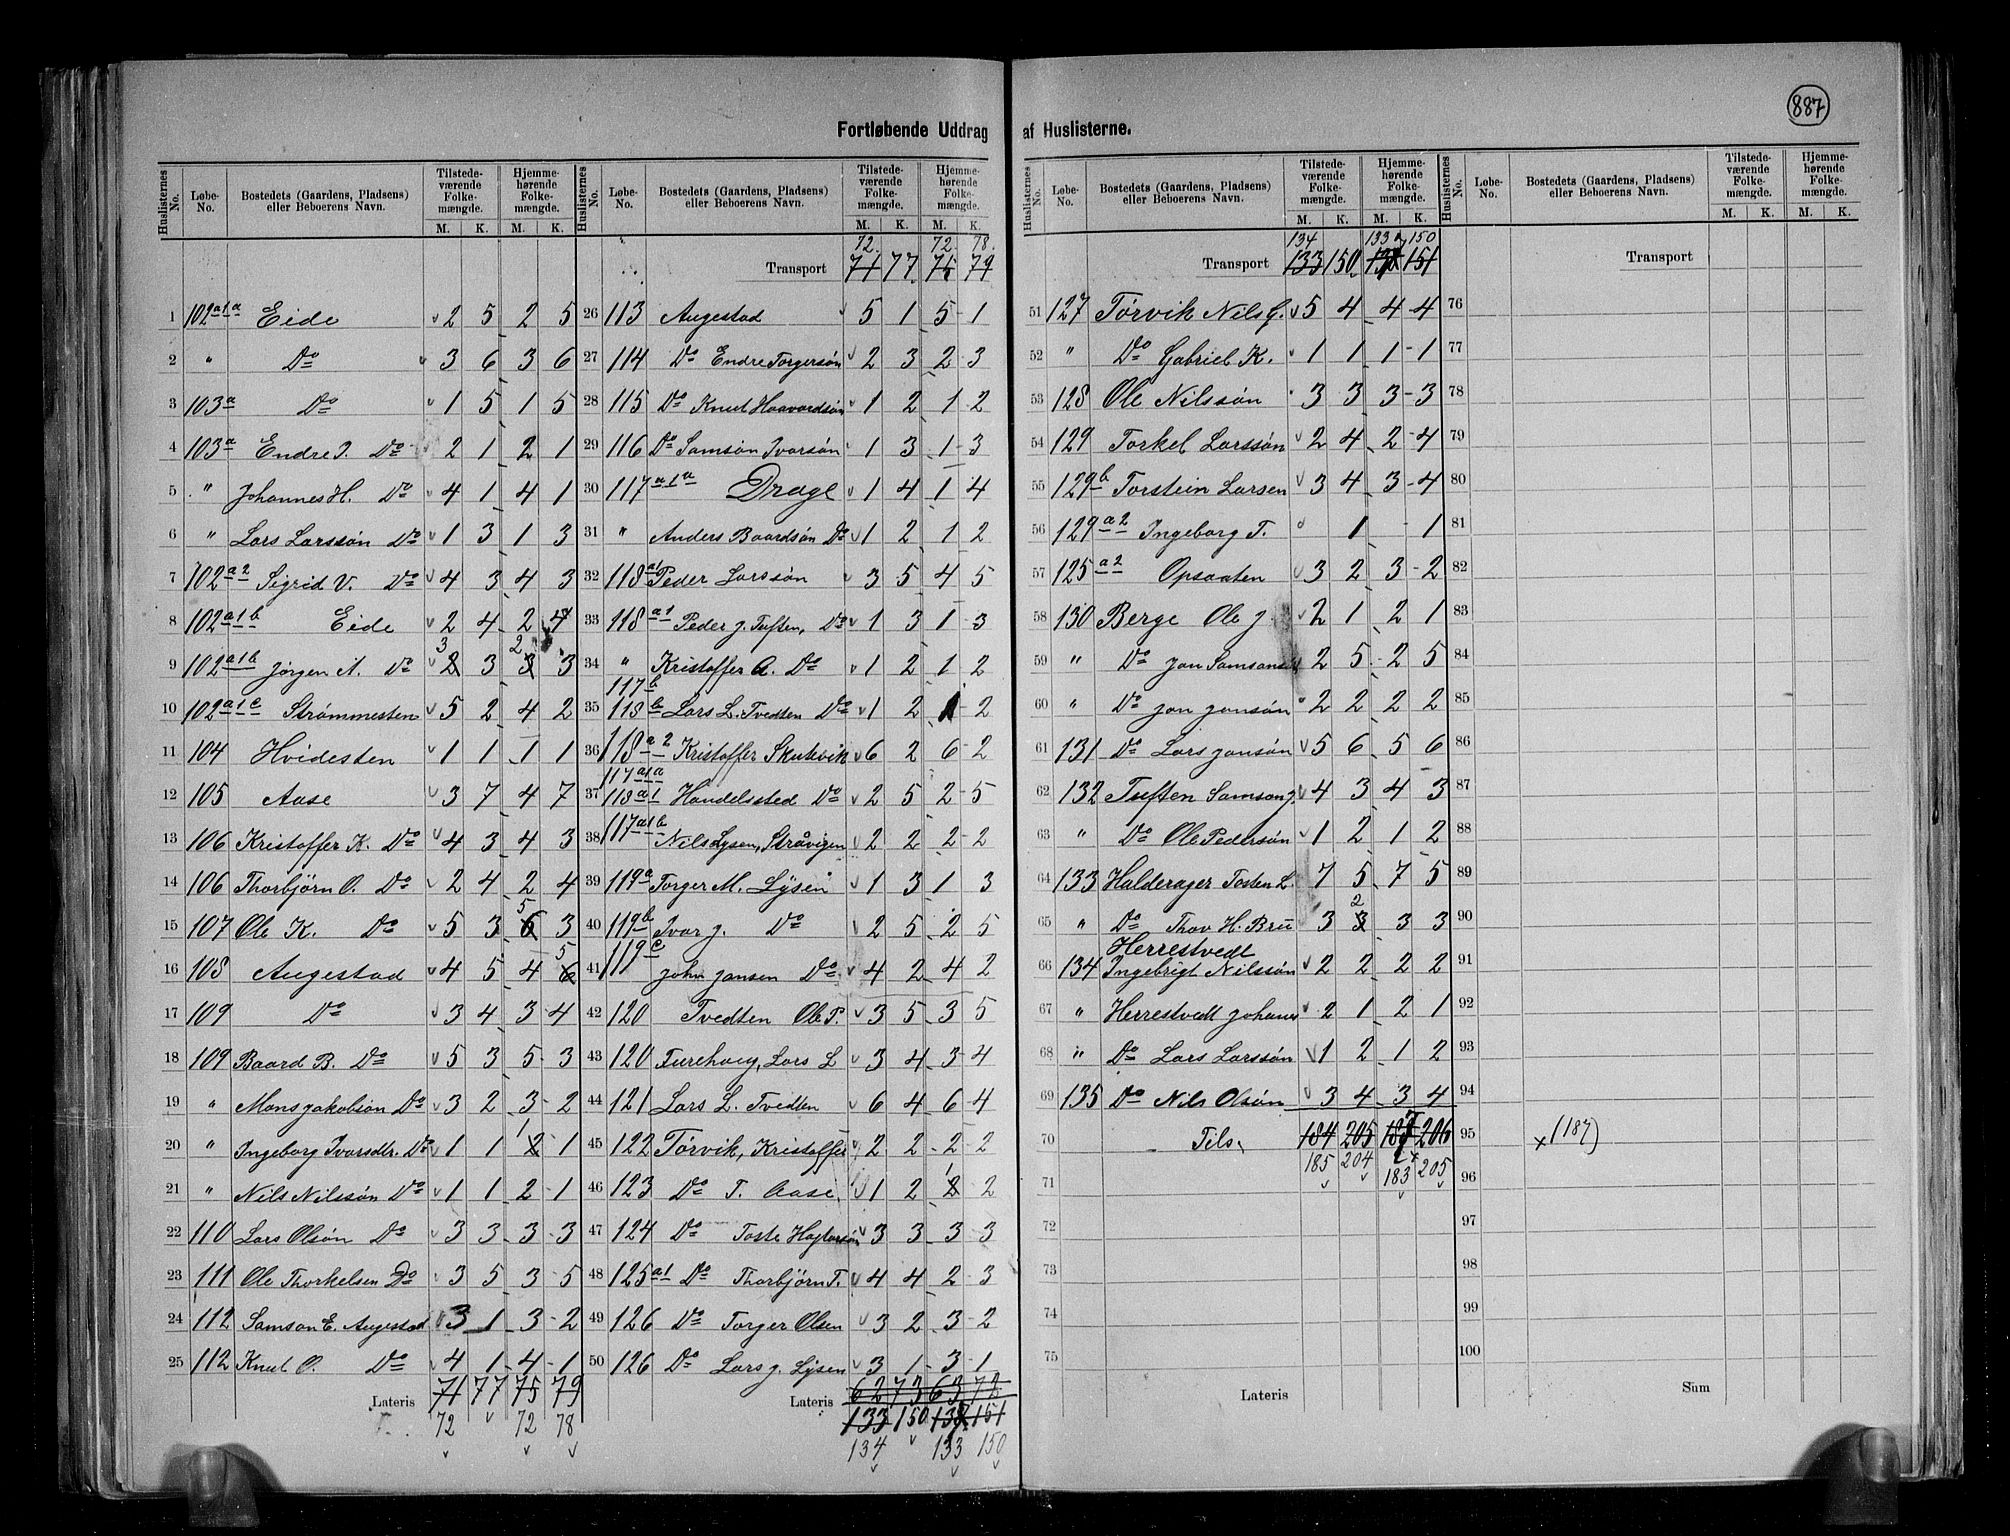 887
Fortløbende Uddrag af Huslisterne.
Huslisternes No. Løbe-No. Bostedets (Gaardens, Pladsens) eller Beboerens Navn. Tilstedeværende Folkemængde. Hjemmehørende Folkemængde.
M. K. M. K.
1 102a1a Eide 2 5 2 5
2 " Do 3 6 3 6
3 103a Do 1 5 1 5
4 103a Endre J. Do 2 1 2 1
5 " Johannes H. Do 4 1 4 1
6 " Lars Larssön Do 1 3 1 3
7 102a2 Sigrid V. Do 4 3 4 3
8 102a1b Eide 2 4 2 4
9 102a1b Jørgen A. Do 3 3 2 3
10 102a1c Strømmesten 5 2 4 2
11 104 Hvidesten 1 1 1 1
12 105 Aase 3 7 4 7
13 106 Kristoffer K. Do 4 3 4 3
14 106 Thorbjörn O. Do 2 4 2 4
15 107 Ole K. Do 5 3 5 3
16 108 Augestad 4 5 4 5
17 109 Do 3 4 3 4
18 109 Baard B. Do 5 3 5 3
19 " Mons Jakobsön Do 3 2 3 2
20 " Ingeborg Ivarsdtr. Do 1 1 1 1
21 " Nils Nilssön Do 1 1 2 1
22 110 Lars Olsön Do 3 3 3 3
23 111 Ole Thorkelsen Do 3 5 3 5
24 112 Samson E. Augestad 3 1 3 2
25 112 Knut O. Do 4 1 4 1
Lateris 71 77 75 79
72 72 78
72. 72. 78.
Transport 71 77 75 79
26 113 Augestad 5 1 5 1
27 114 Do Endre Torgersön 2 3 2 3
28 115 Do Knut Haavardsön 1 2 1 2
29 116 Do Samson Ivarsön 1 3 1 3
30 117a1a Drage 1 4 1 4
31 " Anders Baardsön Do 1 2 1 2
32 118a1 Peder Larssön 3 5 4 5
33 118a1 Peder J. Tuften, Do 1 3 1 3
34 " Kristoffer A. Do 1 2 1 2
117b
35 118b Lars L. Tvedten Do 1 2 1 2
36 118a2 Kristoffer Skutevik 6 2 6 2
117a1a
37 118a1 Handelssted Do 2 5 2 5
38 117a1b Nils Lysen, Stråvigen 2 2 2 2
39 119a Torger M. Lysen 1 3 1 3
40 119b Ivar J. Do 2 5 2 5
41 119c John Jansen Do 4 2 4 2
42 120 Tvedten Ole P. 3 5 3 5
43 120 Furehoug, Lars L 3 4 3 4
44 121 Lars L. Tvedten 6 4 6 4
45 122 Törvik, Kristoffer 2 2 2 2
46 123 Do T. Aase 1 2 1 2
47 124 Do 3 3 3 3
48 125a1 Do Thorbjörn T. 4 4 2 3
49 126 Do Torger Olsen 3 2 3 2
50 126 Do Lars J. Lysen 3 1 3 1
62 73 63 72
Lateris 133 150 138 151
134 133 150
134 133 150
Transport 133 150 138 151
51 127 Törvik Nils G. 5 4 4 4
52 " Do Gabriel K. 1 1 1 1
53 128 Ole Nilssön 3 3 3 3
54 129 Torkel Larssön 2 4 2 4
55 129b Torstein Larsen 3 4 3 4
56 129a2 Ingeborg T. 1 1
57 125a2 Opsaaten 3 2 3 2
58 130 Berge Ole J 2 1 2 1
59 " Do Jan Samsons 2 5 2 5
60 " Do Jan Jansön 2 2 2 2
61 131 Do Lars Jansön 5 6 5 6
62 132 Tuften Samson J. 4 3 4 3
63 " Do Ole Pedersön 1 2 1 2
64 133 Halderager Tosten L. 7 5 7 5
65 " Do Thov H. Bru 3 2 3 3
Herrestvedt
66 134 Ingebrigt Nilssön 2 2 2 2
67 " Herrestvedt Johans 2 1 2 1
68 " Do Lars Larssön 1 2 1 2
69 135 Do Nils Olsön 3 4 3 4
70 Tils. 184 205 187 206
185 204 183 205
71
72
73
74
75
Lateris
Transport
76
77
78
79
80
81
82
83
84
85
86
87
88
89
90
91
92
93
94
95 x (187)
96
97
98
99
100
Sum